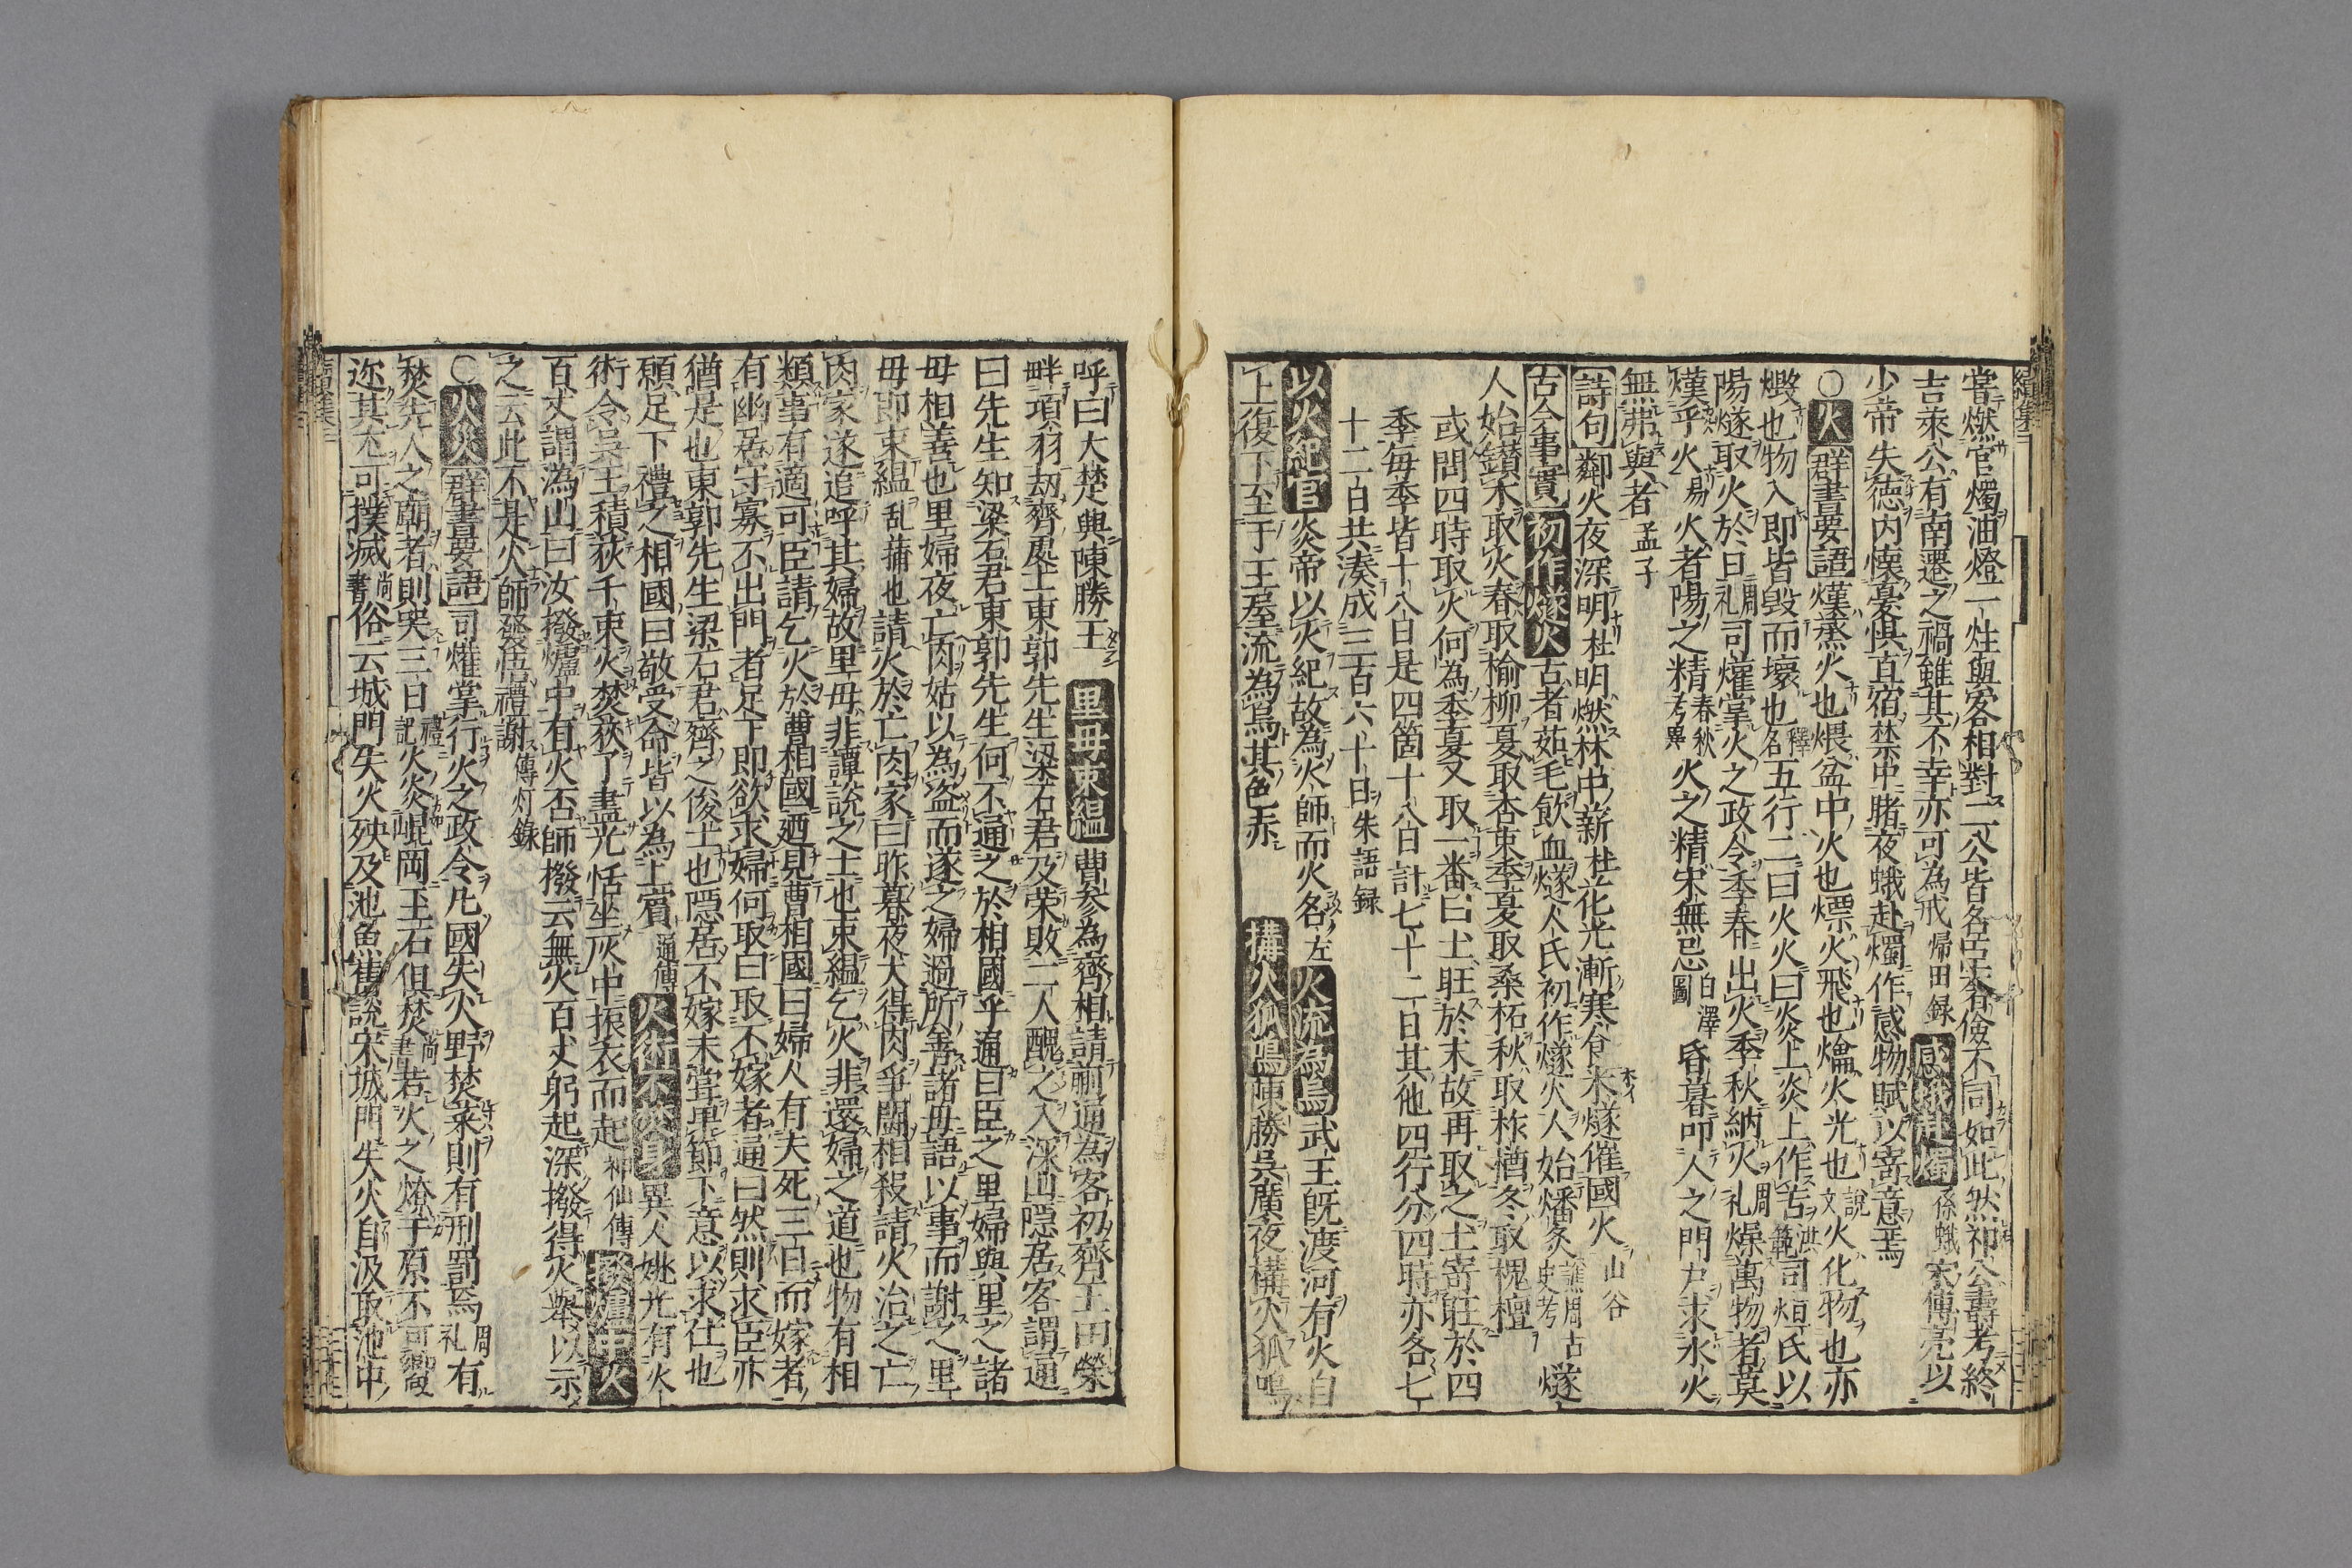 嘗燃官燭油燈一炷與客相對二公皆名臣奢儉不同如此然祁公壽考終
吉萊公有南遷之禍雖其不幸亦可為戒帰田録感蛾赴燭係蛾宋傅亮以
少帝失徳内懐憂惧直宿禁中賭夜蛾赴燭作感物賦以寄意焉
○火群書要語熯蒸火也煨盆中火也熛火飛也爚火光也説文火化物也亦
燬也物入即皆毀而壞也釋名五行二曰火火曰炎上炎上作苦洪範司烜氏以
陽燧取火於日周礼司爟掌火之政令季春出火季秋納火周礼燥萬物者莫
熯乎火易火者陽之精春秋考異火之精宋無忌白澤圖昏暮叩人之門戸求水火
無弗與者孟子
詩句鄰火夜深明杜明燃林中薪杜花光漸寒食木燧催國火山谷
古今事實初作燧火古者茹毛飲血燧人氏初作燧火人始燔炙譙周古史考燧
人始鑚木取火春取楡柳夏取杏棗季夏取桑柘秋取柞楢冬取槐檀
或問四時取火何為季夏又取一番曰土旺於未故再取之土寄旺於四
季毎季皆十八日是四箇十八日計七十二日其他四行分四時亦各七
十二日共湊成三百六十日朱語録
以火紀官炎帝以火紀故為火師而火名左火流為烏武王既渡河有火自
上復下至于王屋流為烏其色赤構火狐鳴陳勝呉廣夜構火狐鳴
呼曰大楚興陳勝王里母束縕曹参為齊相請蒯通為客初齊王田榮
畔項羽劫齊處士東郭先生梁石君及榮敗二人醜之入深山隠居客謂通
曰先生知梁石君東郭先生何不通之於相國乎通曰臣之里婦與里之諸
母相善也里婦夜亡肉姑以為盗而遂之婦過所善諸母語以事而謝之里
母即束縕乱蒱也請火於亡肉家曰昨暮夜犬得肉爭鬪相殺請火治之亡
肉家遂追呼其婦故里母非譚説之士也束縕乞火非還婦之道也物有相
類事有適可臣請乞火於曹相國廼見曹相國曰婦人有夫死三日而嫁者
有幽居守寡不出門者足下即欲求婦何取曰取不嫁者通曰然則求臣亦
猶是也東郭先生梁石君齊之俊士也隠居不嫁未嘗卑節下意以求仕也
願足下禮之相國曰敬受命皆以為上賓通傳火術不焚身異人姚光有火
術令呉王積荻千束火焚荻了盡光恬坐灰中振衣而起神仙傳撥爐中火
百丈謂潙山曰汝撥爐中有火否師撥云無火百丈躬起深撥得火挙以示
之云此不是火師発悟禮謝傳灯録
○火災群書要語司爟掌行火之政令凡國失火野焚莱則有刑罰焉周礼有
焚先人之廟者則哭三日禮記火炎崐岡玉石倶焚尚書若火之燎于原不可嚮
迩其尤可撲滅尚書俗云城門失火殃及池魚舊説宋城門失火自汲取池中